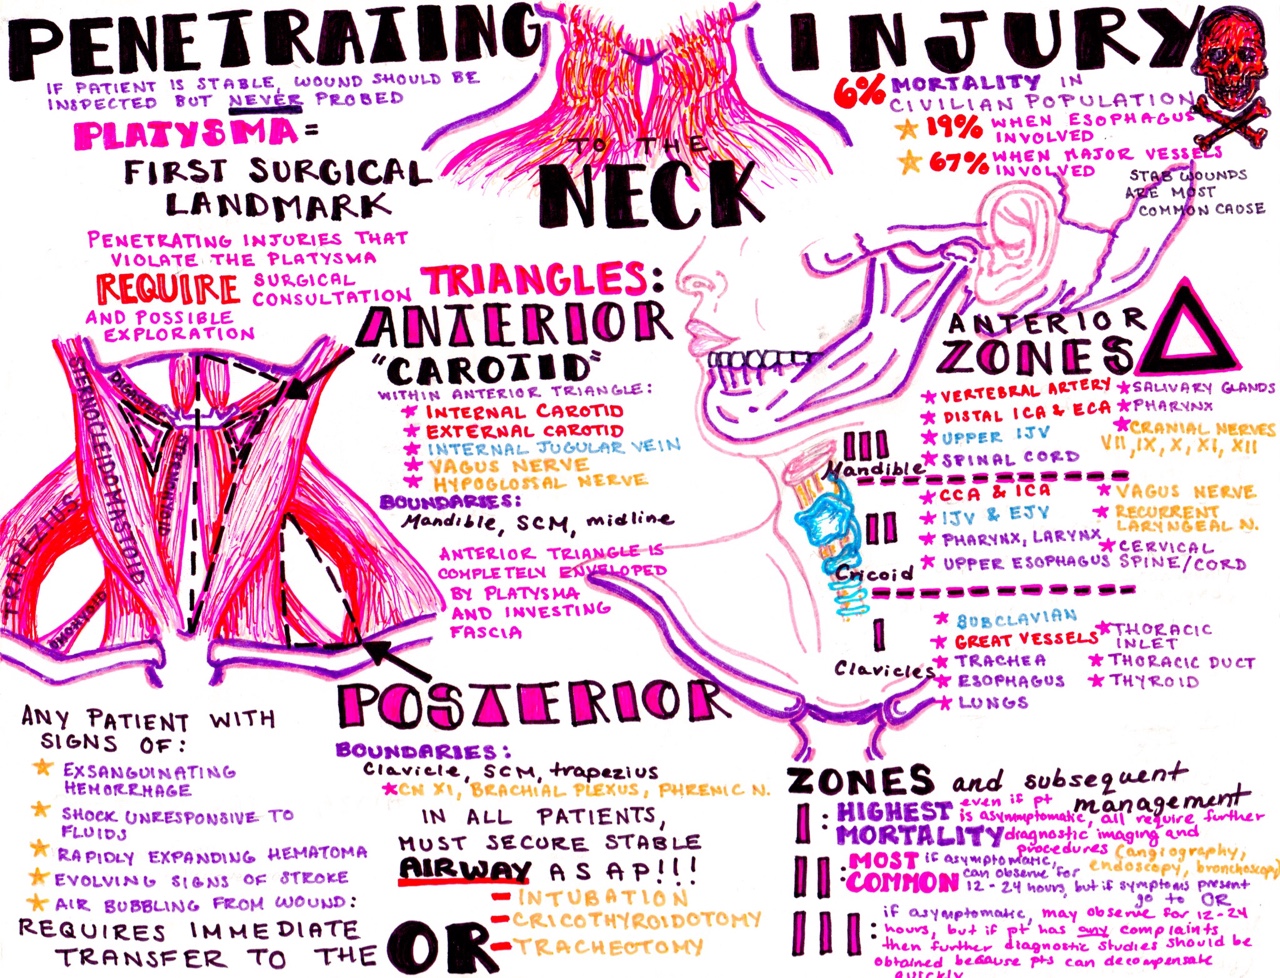 PENETRATING INJURY
TO THE
NECK
IF PATIENT IS STABLE, WOUND SHOULD BE
INSPECTED BUT NEVER PROBED
PLATYSMA =
FIRST SURGICAL
LANDMARK
PENETRATING INJURIES THAT
VIOLATE THE PLATYSMA
REQUIRE SURGICAL
CONSULTATION
AND POSSIBLE
EXPLORATION
6% MORTALITY IN
CIVILIAN POPULATION
19% WHEN ESOPHAGUS
INVOLVED
67% WHEN MAJOR VESSELS
INVOLVED
STAB WOUNDS
ARE MOST
COMMON CAUSE
TRIANGLES:
ANTERIOR
"CAROTID"
WITHIN ANTERIOR TRIANGLE:
INTERNAL CAROTID
EXTERNAL CAROTID
INTERNAL JUGULAR VEIN
VAGUS NERVE
HYPOGLOSSAL NERVE
BOUNDARIES:
Mandible, SCM, midline
ANTERIOR TRIANGLE IS
COMPLETELY ENVELOPED
BY PLATYSMA
AND INVESTING
FASCIA
STERNOCLEIDOMASTOID
DIGASTRIC
STERNOHYOID
TRAPEZIUS
OMOHYOID
POSTERIOR
BOUNDARIES:
Clavicle, SCM, trapezius
CN XI, BRACHIAL PLEXUS, PHRENIC N.
IN ALL PATIENTS,
MUST SECURE STABLE
AIRWAY ASAP!!!
- INTUBATION
- CRICOTHYROIDOTOMY
- TRACHEOTOMY
ANY PATIENT WITH
SIGNS OF:
EXSANGUINATING
HEMORRHAGE
SHOCK UNRESPONSIVE TO
FLUIDS
RAPIDLY EXPANDING HEMATOMA
EVOLVING SIGNS OF STROKE
AIR BUBBLING FROM WOUND:
REQUIRES IMMEDIATE
TRANSFER TO THE OR
ANTERIOR
ZONES
III
Mandible
VERTEBRAL ARTERY
DISTAL ICA & ECA
UPPER IJV
SPINAL CORD
SALIVARY GLANDS
PHARYNX
CRANIAL NERVES
VII, IX, X, XI, XII
II
Cricoid
CCA & ICA
IJV & EJV
PHARYNX, LARYNX
UPPER ESOPHAGUS
VAGUS NERVE
RECURRENT
LARYNGEAL N.
CERVICAL
SPINE/CORD
I
Clavicles
SUBCLAVIAN
GREAT VESSELS
TRACHEA
ESOPHAGUS
LUNGS
THORACIC
INLET
THORACIC DUCT
THYROID
ZONES and subsequent
management
I: HIGHEST
MORTALITY
even if pt
is asymptomatic, all require further
diagnostic imaging and
procedures (angiography,
endoscopy, bronchoscopy
II: MOST
COMMON
if asymptomatic,
can observe for
12-24 hours, but if symptoms present
go to OR
III: if asymptomatic, may observe for 12-24
hours, but if pt has any complaints
then further diagnostic studies should be
obtained because pts can decompensate
quickly